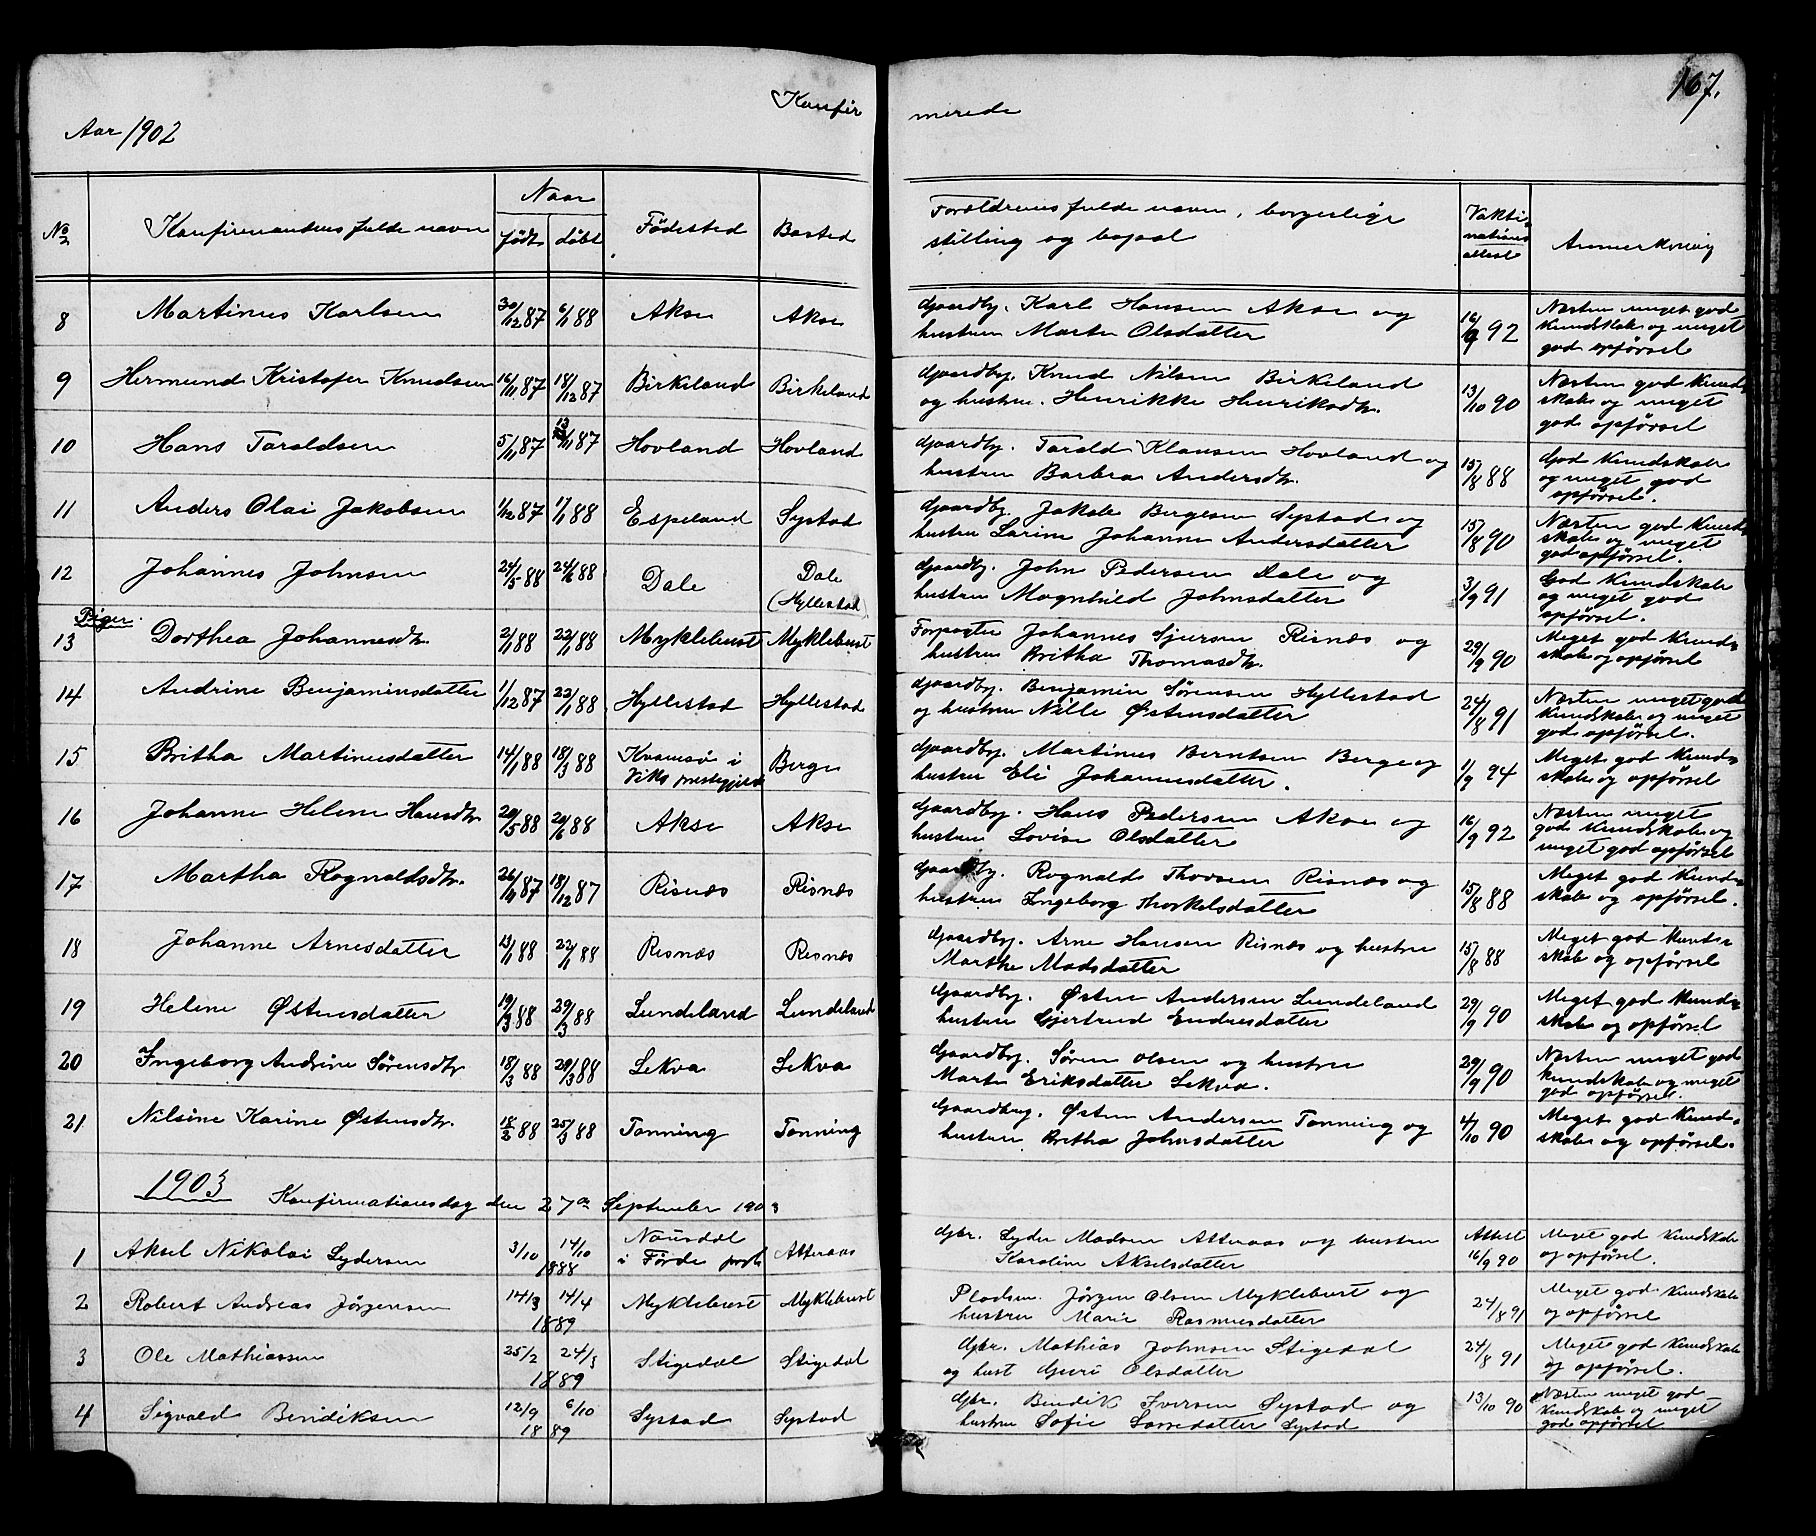 Konfir merede 167.
Aar 1902
No Konfirmantens fulde navn Naar født døbt Fødested Bosted Forældrenes fulde navn, borgerlige stilling og bopæl Vakti-nations attest Anmerkning
8 Martinus Karlsen 30/12 87 6/1 88 Akse Akse Gaardbr. Karl Hansen Akse og 16/9 92 Næsten meget god
hustru Marte Olsdatter kundskab og meget
god opførsel
9 Hermund Kristofer Knudsen 16/11 87 18/12 87 Birkeland Birkeland Gaardbr. Knud Nilsen Birkeland 13/10 90 Næsten god kund-
og hustru Henrikke Henriksdtr. skab og meget
god opførsel
10 Hans Taraldsen 5/11 87 13/11 87 Hovland Hovland Gaardbr. Tarald Klausen Hovland og 15/8 88 God kundskab
hustru Barbra Andersdtr. og meget god
opførsel.
11 Anders Olai Jakobsen 1/12 87 1/1 88 Espeland Systad Gaardbr. Jakob Bergesen Systad og 15/8 90 Næsten god kund-
hustru Larine Johanne Andersdatter skab og meget
god opførsel.
12 Johannes Johnsen 24/5 88 24/6 88 Dale Dale (Hyllestad) Gaardbr. John Pedersen Dale og 3/9 91 God kundskab
hustru Magnhild Johnsdatter og meget god
opførsel.
Piger.
13 Dorthea Johannesdtr. 2/1 88 22/1 88 Myklebust Myklebust Forpagter Johannes Sjursen Risnæs og 29/9 90 Meget god kund-
hustru Britha Thomasdtr. skab og opførsel
14 Andrine Benjaminsdatter 1/12 87 22/1 88 Hyllestad Hyllestad Gaardbr. Benjamin Sørensen Hyllestad 24/8 91 Næsten meget god
og hustru Nille Østensdatter kundskab og meget
god opførsel.
15 Britha Martinusdatter 14/1 88 18/3 88 Kvamsø i Viks prestegjeld Berge Gaardbr. Martinus Berntsen Berge og 1/9 94 Meget god kund-
hustru Eli Johannesdatter. skab og opførsel
16 Johanne Helene Hansdtr 20/5 88 24/6 88 Akse Akse Gaardbr. Hans Pedersen Akse og 16/9 92 Næsten meget
hustru Lovise Olsdatter god kundskab og
meget god opførsel
17 Martha Rognaldsdtr. 26/11 87 18/12 87 Risnæs Risnæs Gaardbr. Rognald Thorsen Risnæs og 15/8 88 Meget god kund-
hustru Ingeborg Thorkelsdatter skab og opførsel.
18 Johanne Arnesdatter 13/1 88 22/1 88 Risnæs Risnæs Gaardbr. Arne Hansen Risnæs og hustru 15/8 88 Meget god kund-
Marthe Madsdatter skab og opførsel
19 Helene Østensdatter 19/3 88 29/3 88 Lundeland Lundeland Gaardbr. Østen Andersen Lundeland 29/9 90 Meget god kund-
hustru Gjertrud Endresdatter skab og opførsel
20 Ingeborg Andrine Sørensdtr 18/3 88 29/3 88 Lekva Lekva Gaardbr. Søren Olsen og hustru 29/9 90 Næsten meget god
Marte Eriksdatter Lekva. kundskab og meget
god opførsel.
21 Nilsine Karine Østensdtr. 18/2 88 25/3 88 Tonning Tonning Gaardbrug. Østen Andersen Tonning og 4/10 90 Meget god kund-
hustru Britha Johnsdatter skab og opførsel.
1903
Konfirmationsdag den 27de September 1903
1 Aksel Nikolai Lydersen 3/10 14/10 1888 Naustdal i Førde prgld Atteraas Gbr. Lyder Madsen Atteraas og hustru Attest 16/9 90 Meget god kundskab
Karoline Akselsdatter og opførsel.
2 Robert Andreas Jørgensen 14/3 14/4 1889 Myklebust Myklebust Pladsm. Jørgen Olsen Myklebust og 24/8 91 Meget god kundskab
hustru Marie Rasmusdatter og opførsel
3 Ole Mathiassen 25/2 24/3 1889 Stigedal Stigedal Gbr. Mathias Johnsen Stigedal 24/8 91 Meget god kundskab
og hust Guri Olsdatter og opførsel.
4 Sigvald Bendiksen 12/9 6/10 1889 Systad Systad Gbr. Bendik Iversen Systad og 13/10 90 Næsten meget god
hustru Sofie Larsdatter Systad kundskab og meget
god opførsel